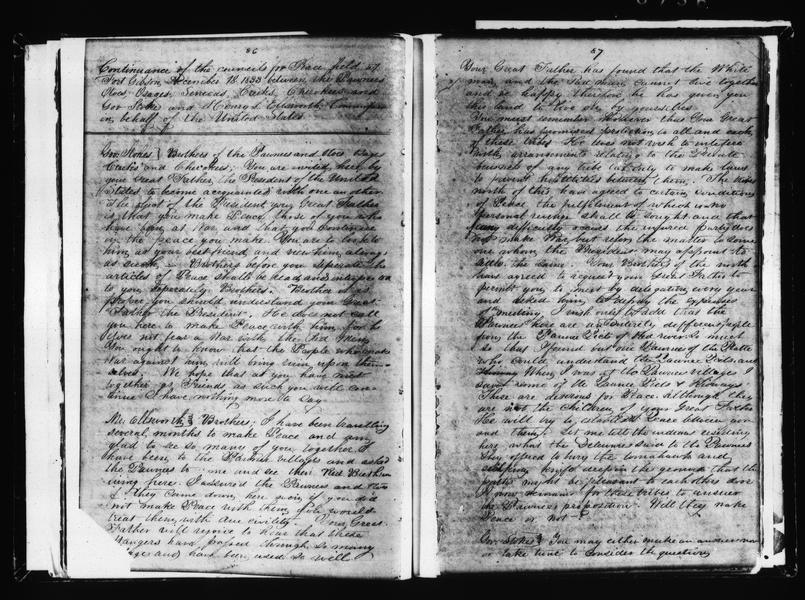 86
Continuance of the councils for Peace held at
Fort Gibson December 18 1833 between the Pawnees
Otoes, Osages, Senecas, Creeks, Cherokees and
Gov Stoke and Henry L Ellsworth Commiss
on behalf of the United States
Gov Stokes Brothers of the Pawnees and Otoes Osage
Creeks and Cherokees; You are invited here by
your Great Father, the President of the United
States to become acquainted with one another
The object of the President your Great Father
is that you make Peace those of you who
have been at War and that you continue
in the peace you make. You are to look to
him as your best friend, and view him always
as such. Brothers before you separate the
articles of Peace shall be read and interpreted
to you seperately. Brothers. Brother it is
proper you should understand your Great
Father the President. He does not call
you here to make Peace with him for he
does not fear a War with the Red Men
You ought to know that the People who make
War against him will bring ruin upon them
selves. We hope that as you have met
together as Friends as such you will con
tinue I have nothing more to say
Mr. Ellsworth Brothers; I have been travelling
several months to make Peace and am
glad to see so many of you together. I
have been to the Pawnee villages and asked
the Pawnees to me and see their Red Brethren
living here. I assured the Pawnees and Otoes
if they came down here even if you did
not make Peace with them you would
treat them with due civility. Your Great
Father will rejoice to hear that these
strangers have passed through so many
and have been used so well
87
Your Great Father has found that the White
man and the Red man cannot live together
and be happy therefore he has given you
this land to live on by yourselves
You must remember however that your Great
Father has promised protection to all and each
of these tribes He does not wish to interfere
with arrangements relating to the private
concerns of any tribe but only to make laws
to prevent hostilities between them. The tribes
north of this have agreed to certain conditions
of Peace the fulfilment of which
personal revenge shall be sought and that
difficulty occurs the injured party does
not make War, but refers the matter to some
one whom the President may appoint to
settle the same Your Brothers of the north
have agreed to request your Great Father to
permit you to meet by delegation every year
and asked him to defray the expenses
of meeting, I wish only to add that the
Pawnees here are an entirely different people
from the Pawnee Picts of Red river so much
so that I found but one Pawnee of the Platte
who could understand the Pawnee Picts and
When I was at the Pawnee villages I
saw some of the Pawnee Picts & Kioways
These are desirous for Peace although they
are not the Children of your Great Father
He will try to establish Peace between you
and them. Let me tell the indians residing
here what the Delawares said to the Pawnees
They offered to bury the tomahawk and
scalping knife deep in the ground that the
paths might be pleasant to each others door
It now remains for these tribes to answer
the Pawnees proposition. Will they make
Peace or not
Gov Stokes You may either make an answer now
or take time to consider the question